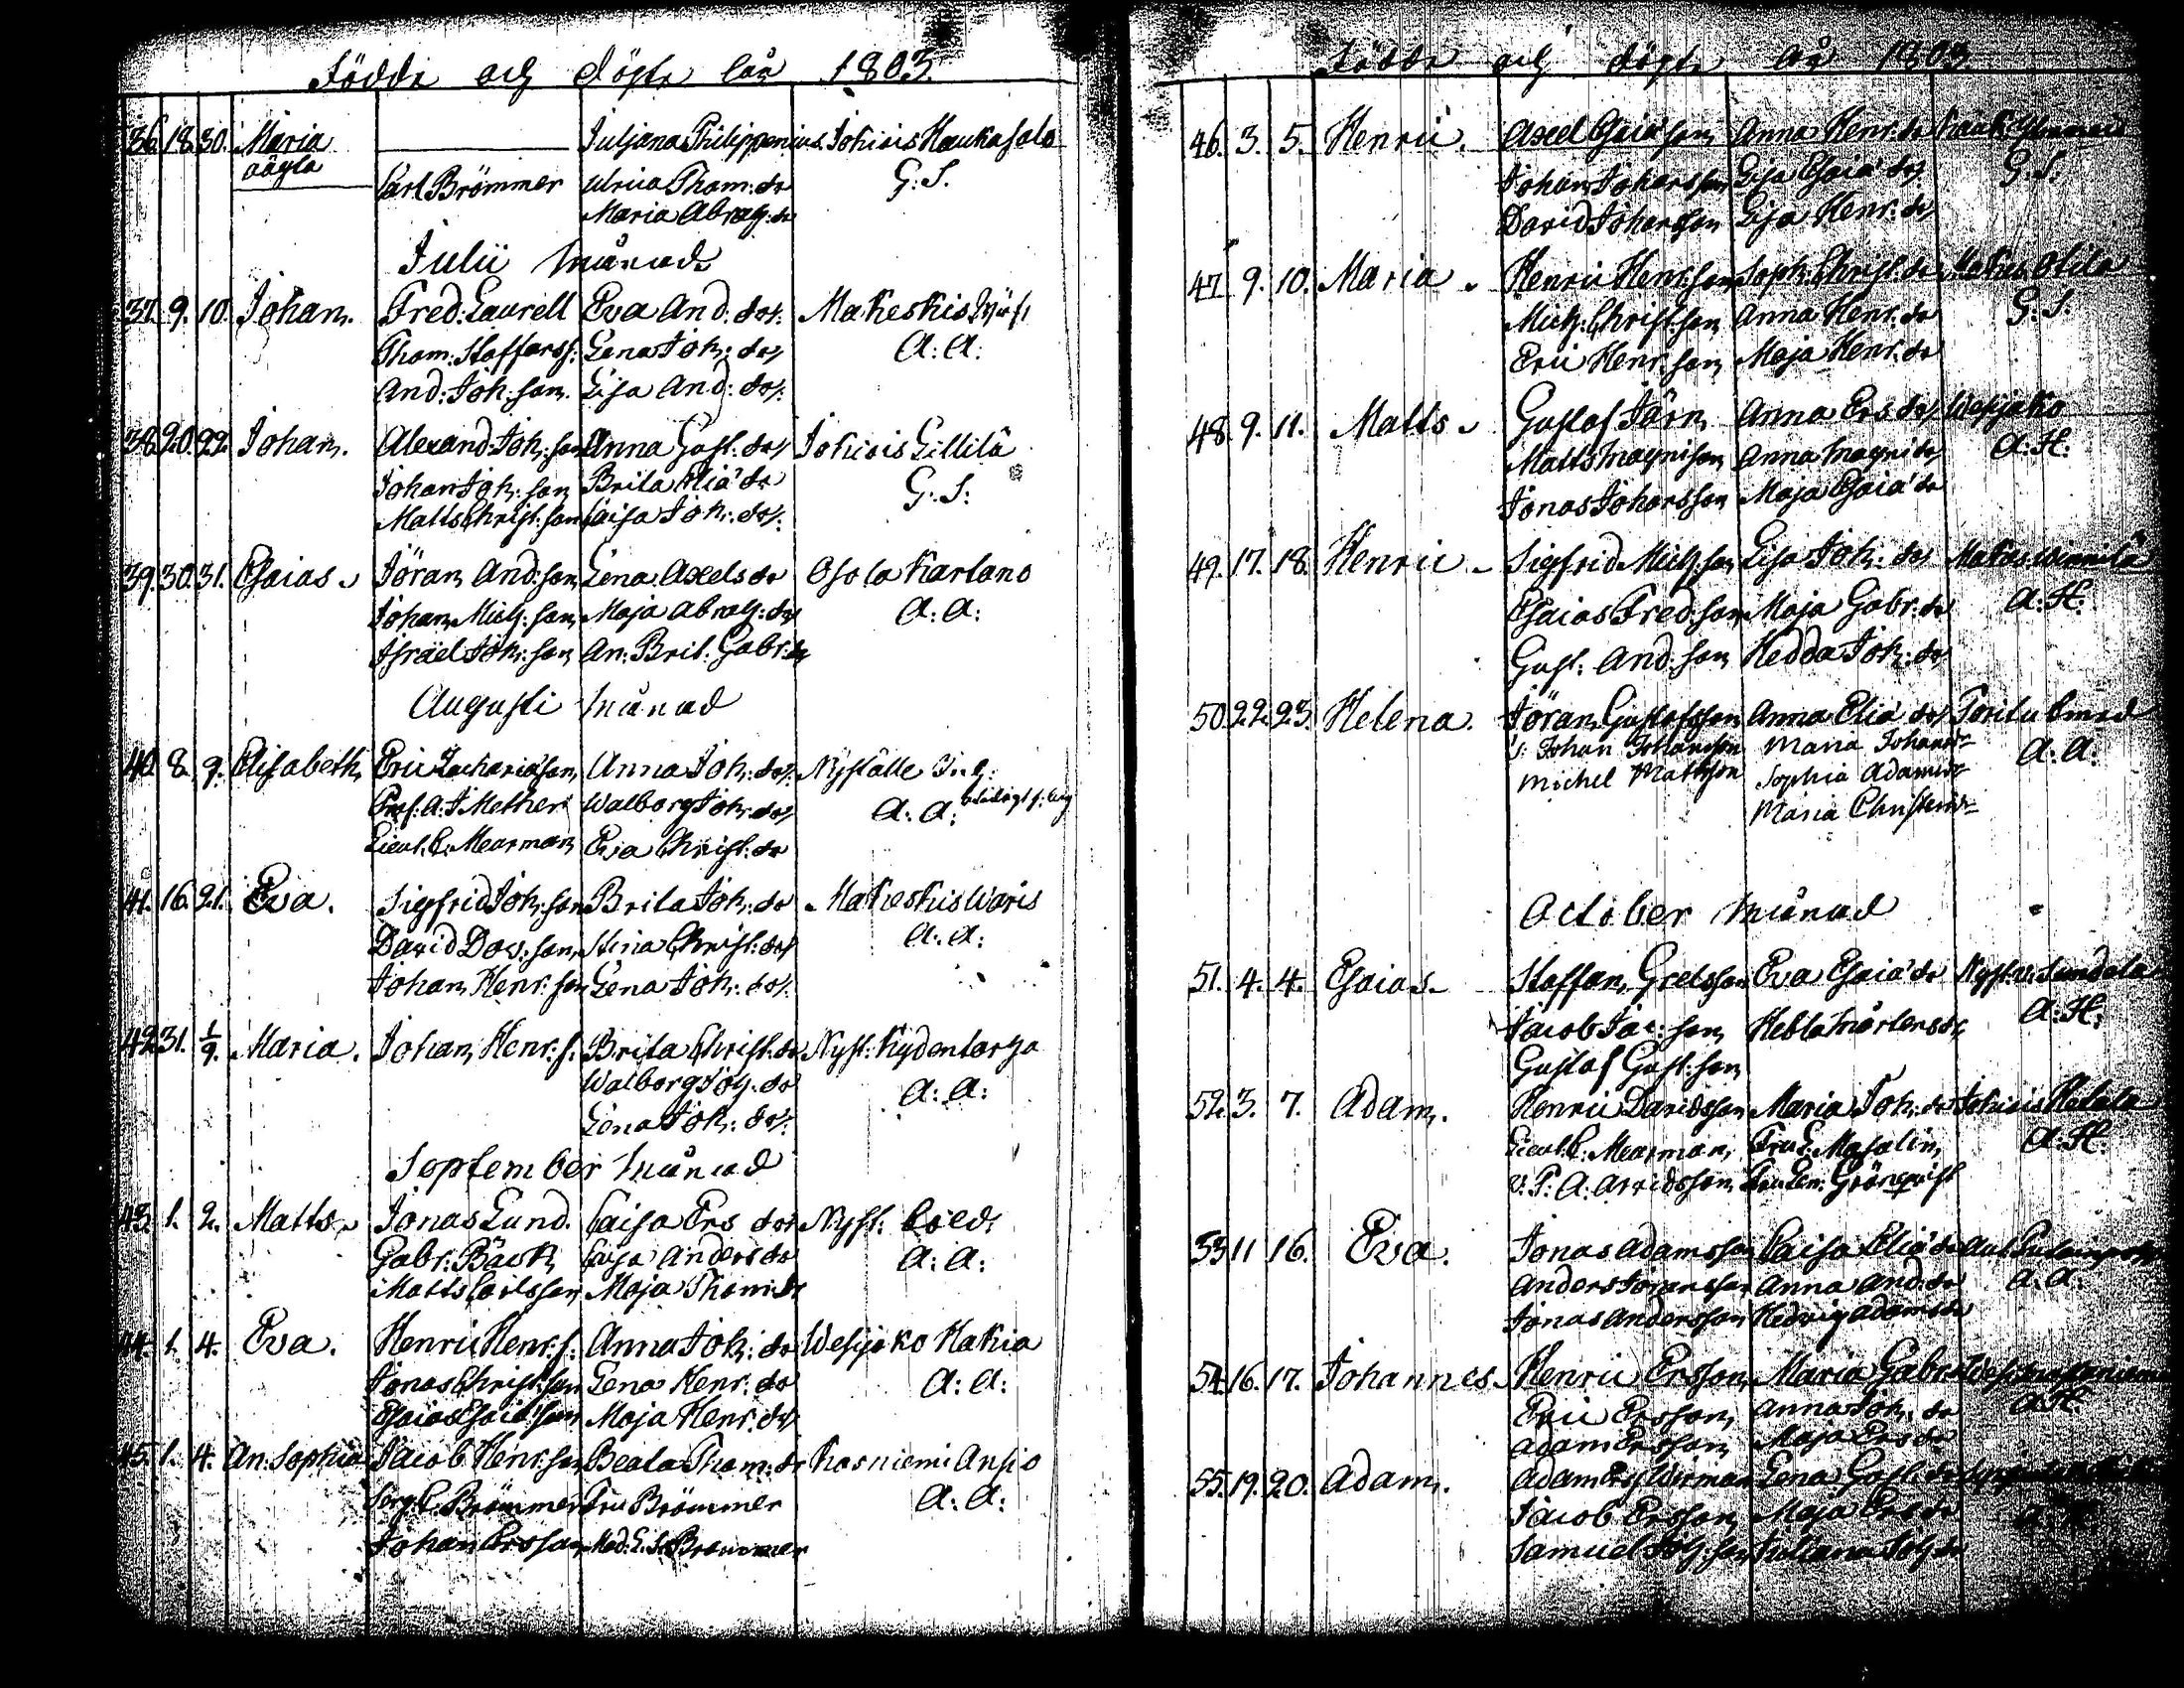 Födde och döpte år 1803.
36. 18. 30. Maria Juljana Philippenius. Jokiois Haukasalo
oägta Carl Brömmer Ulrica Thom: dr G: S.
Maria Abrah: dr
Julii månad
37. 9. 10. Johan. Fred: Laurell Eva And: dotr. Makeskis
Thom: Staffanss: Lena Joh: dotr A: A:
And: Joh: son. Lisa And: dotr.
38. 20. 22. Johan. Alexand Joh: son Anna Gust: dotr Jokiois Lillilä
Johan Joh: son Brita Eliæ dr G: S:
Matts Christ: son Caisa Joh: dotr.
39. 30. 31. Esaias. Jöran And: son Lena Axels dr Osola Kartano
Johan Mich: son Maja Abrah: dr A: A:
Israel Joh: son An: Brit: Gabr: dr
Augusti månad
40. 8. 9. Elisabeth Eric Zachariæson Anna Joh: dotr. Nyställe
A. J. Mether Walborg Joh: dotr A: A:
Lieut. C. Mearman Eva Christ: dr
41. 16. 21. Eva. Sigfrid Joh: son Brita Joh: dr Makeskis Waris
David Dav: son Stina Christ: dotr A: A:
Johan Henr: son Lena Joh: dotr.
42. 31. 1/9. Maria. Johan Henr: s. Brita Christ: dr Nyst: Kydenlarya
Walborg Joh: dr A: A:
Lena Joh: dotr.
September månad
43. 1. 2. Matts. Jonas Lund. Caisa Ers dotr Nyst:
Gabr: Bäck Caisa Anders dr A: A:
Matts Carlsson Maja Thom: dr
44. 1. 4. Eva. Henric Henr: s. Anna Joh: dr Wesjoko Hakia
Jonas Christ: son Lena Henr: dr A: A:
Esaias Esaiæson Maja Henr: dr
45. 1. 4. An: Sophia Jacob Henr: son Beata Thom: dr Kosniemi Ansio
Serg. C. Brömmer Fru Brömmer A: A:
Johan Ersson Mad: E. S. Brömmer
Födde och döpte år 1803
46. 3. 5. Henric. Axel Esaiæson Anna Henr: dr
Johan Johansson Lisa Esaiæ dr G: S.
David Johansson Lisa Henr: dr
47. 9. 10. Maria. Henric Henr: son Soph: Christ: dr
Mich: Christ: son Anna Henr: dr G: S:
Eric Henr: son Maja Henr: dr
48. 9. 11. Matts. Gustaf Järn Anna Ers dr Wesjoko
Matts Magni son Anna Magni dr A: H:
Jonas Johansson Maja Esaiæ dr
49. 17. 18. Henric. Sigfrid Mich: son Lisa Joh: dr
Esaias Fred: son Maja Gabr: dr A: H:
Gust: And: son Hedda Joh: dr
50. 22. 23. Helena. Jöran Gustafsson Anna Eliæ dotr
S: Johan Johansson Maria Johansdr A: A:
Michel Mattsson Sophia Adamsdr
Maria Christersdr
October månad
51. 4. 4. Esaias. Staffan Grelsson Eva Esaiæ dr
Jacob Jac: son Hebla Mårtens dr A: H:
Gustaf Gust: son
52. 3. 7. Adam. Henric Davidsson Maria Joh: dr Jokiois
Lieut. C. Mearman, Fru E. Masalin, A: H:
V. P. A. Arvidsson, Grönqvist
53. 11. 16. Eva. Jonas Adamsson Caisa Eliæ dr
Anders Jöransson Anna And: dr A: A:
Jonas Andersson Hedvig Adams dr
54. 16. 17. Johannes. Henric Ersson Maria Gabr:
Eric Ersson Anna Joh: dr A: H:
Adam Ersson Maja Ers dr
55. 19. 20. Adam. Adam Lena Gust: dr
Jacob Ersson Maja Ers dr
Samuel Joh: son Juliana Joh: dr